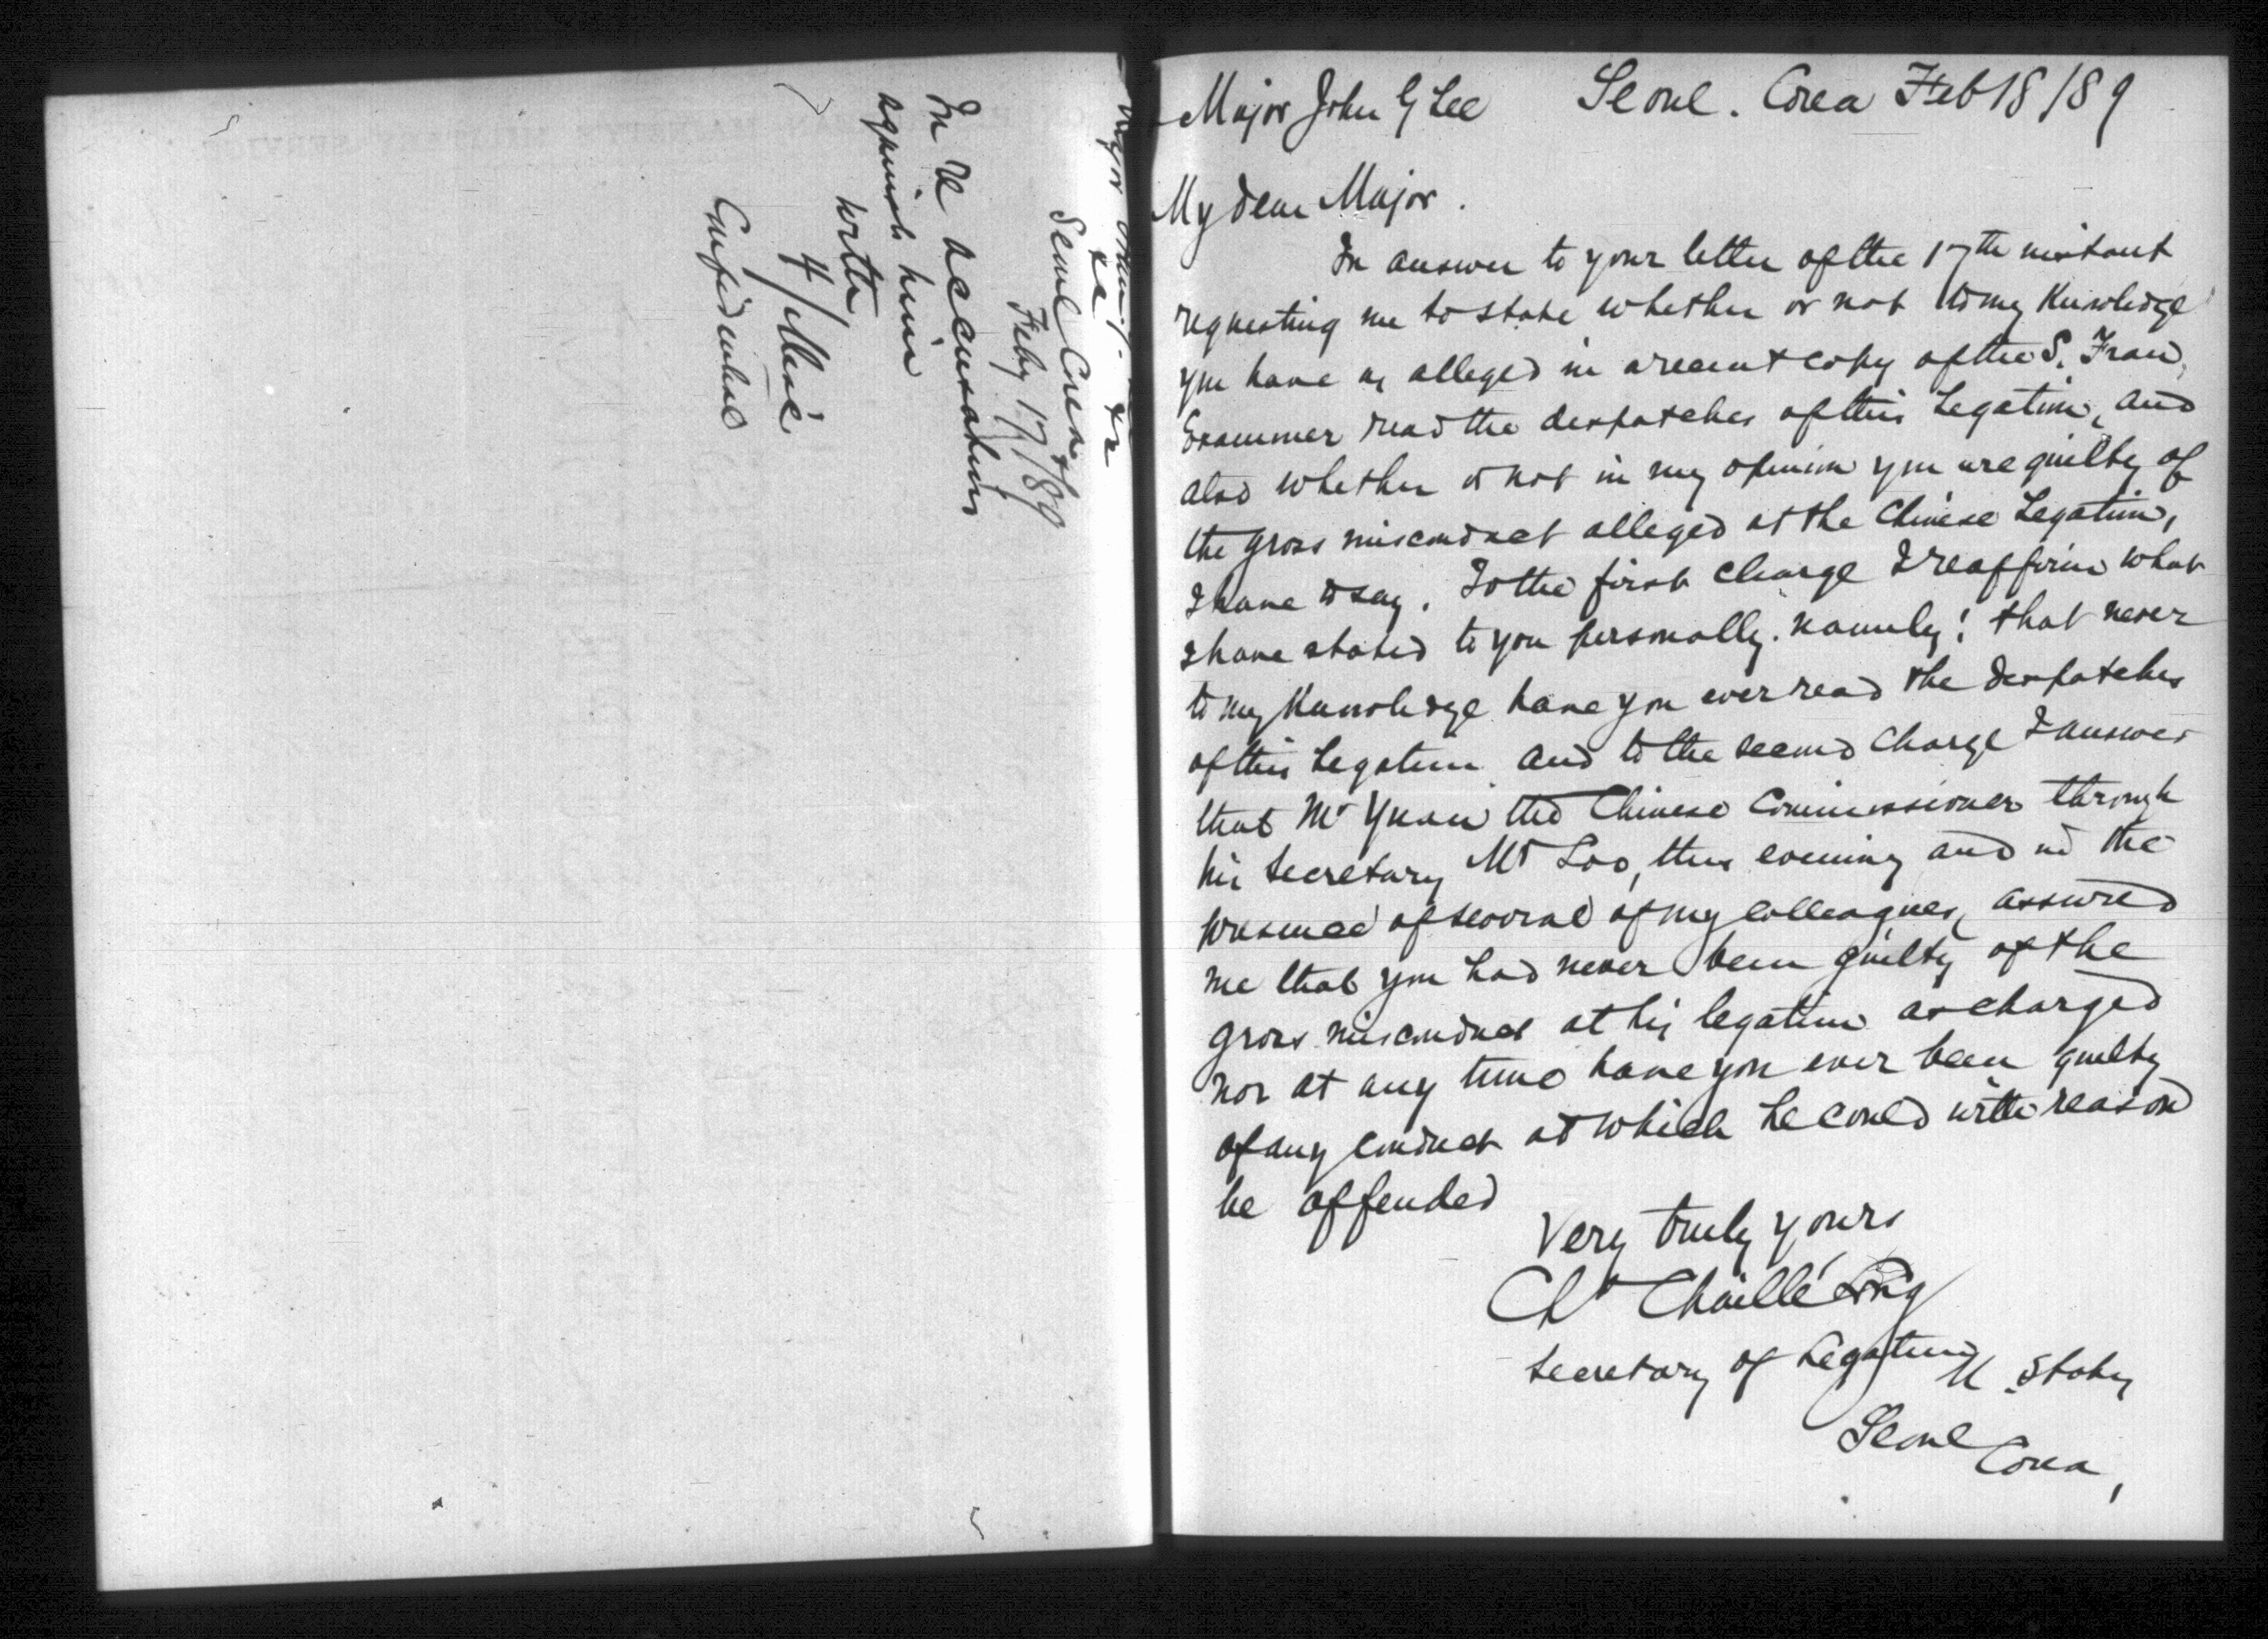 Seoul Corea
Feby 17th/89
In re accusations
against him
with
4/
Confidential
Major John G Lee Seoul. Corea Feb 18/89
My dear Major.
In answer to your letter of the 17th instant
requesting me to state whether or not to my Knowledge
you have as alleged in a recent copy of the S. Fran,
Examiner read the despatches of this Legation, and
also whether or not in my opinion you are guilty of
the gross misconduct alleged at the Chinese Legation,
I have to say. To the first charge I reaffirm what
I have stated to you personally. namely: that never
to my Knowledge have you ever read the despatches
of this Legation and to the second charge I answer
that Mr Yuan the Chinese Commissioner through
his Secretary Mr Loo, this evening and in the
presence of several of my colleagues, assured
me that you had never been guilty of the
gross misconduct at his legation as charged
nor at any time have you ever been guilty
of any conduct at which he could with reason
be offended
Very truly yours
Ch Chaillé Long
Secretary of Legation U. States
Seoul
Corea,